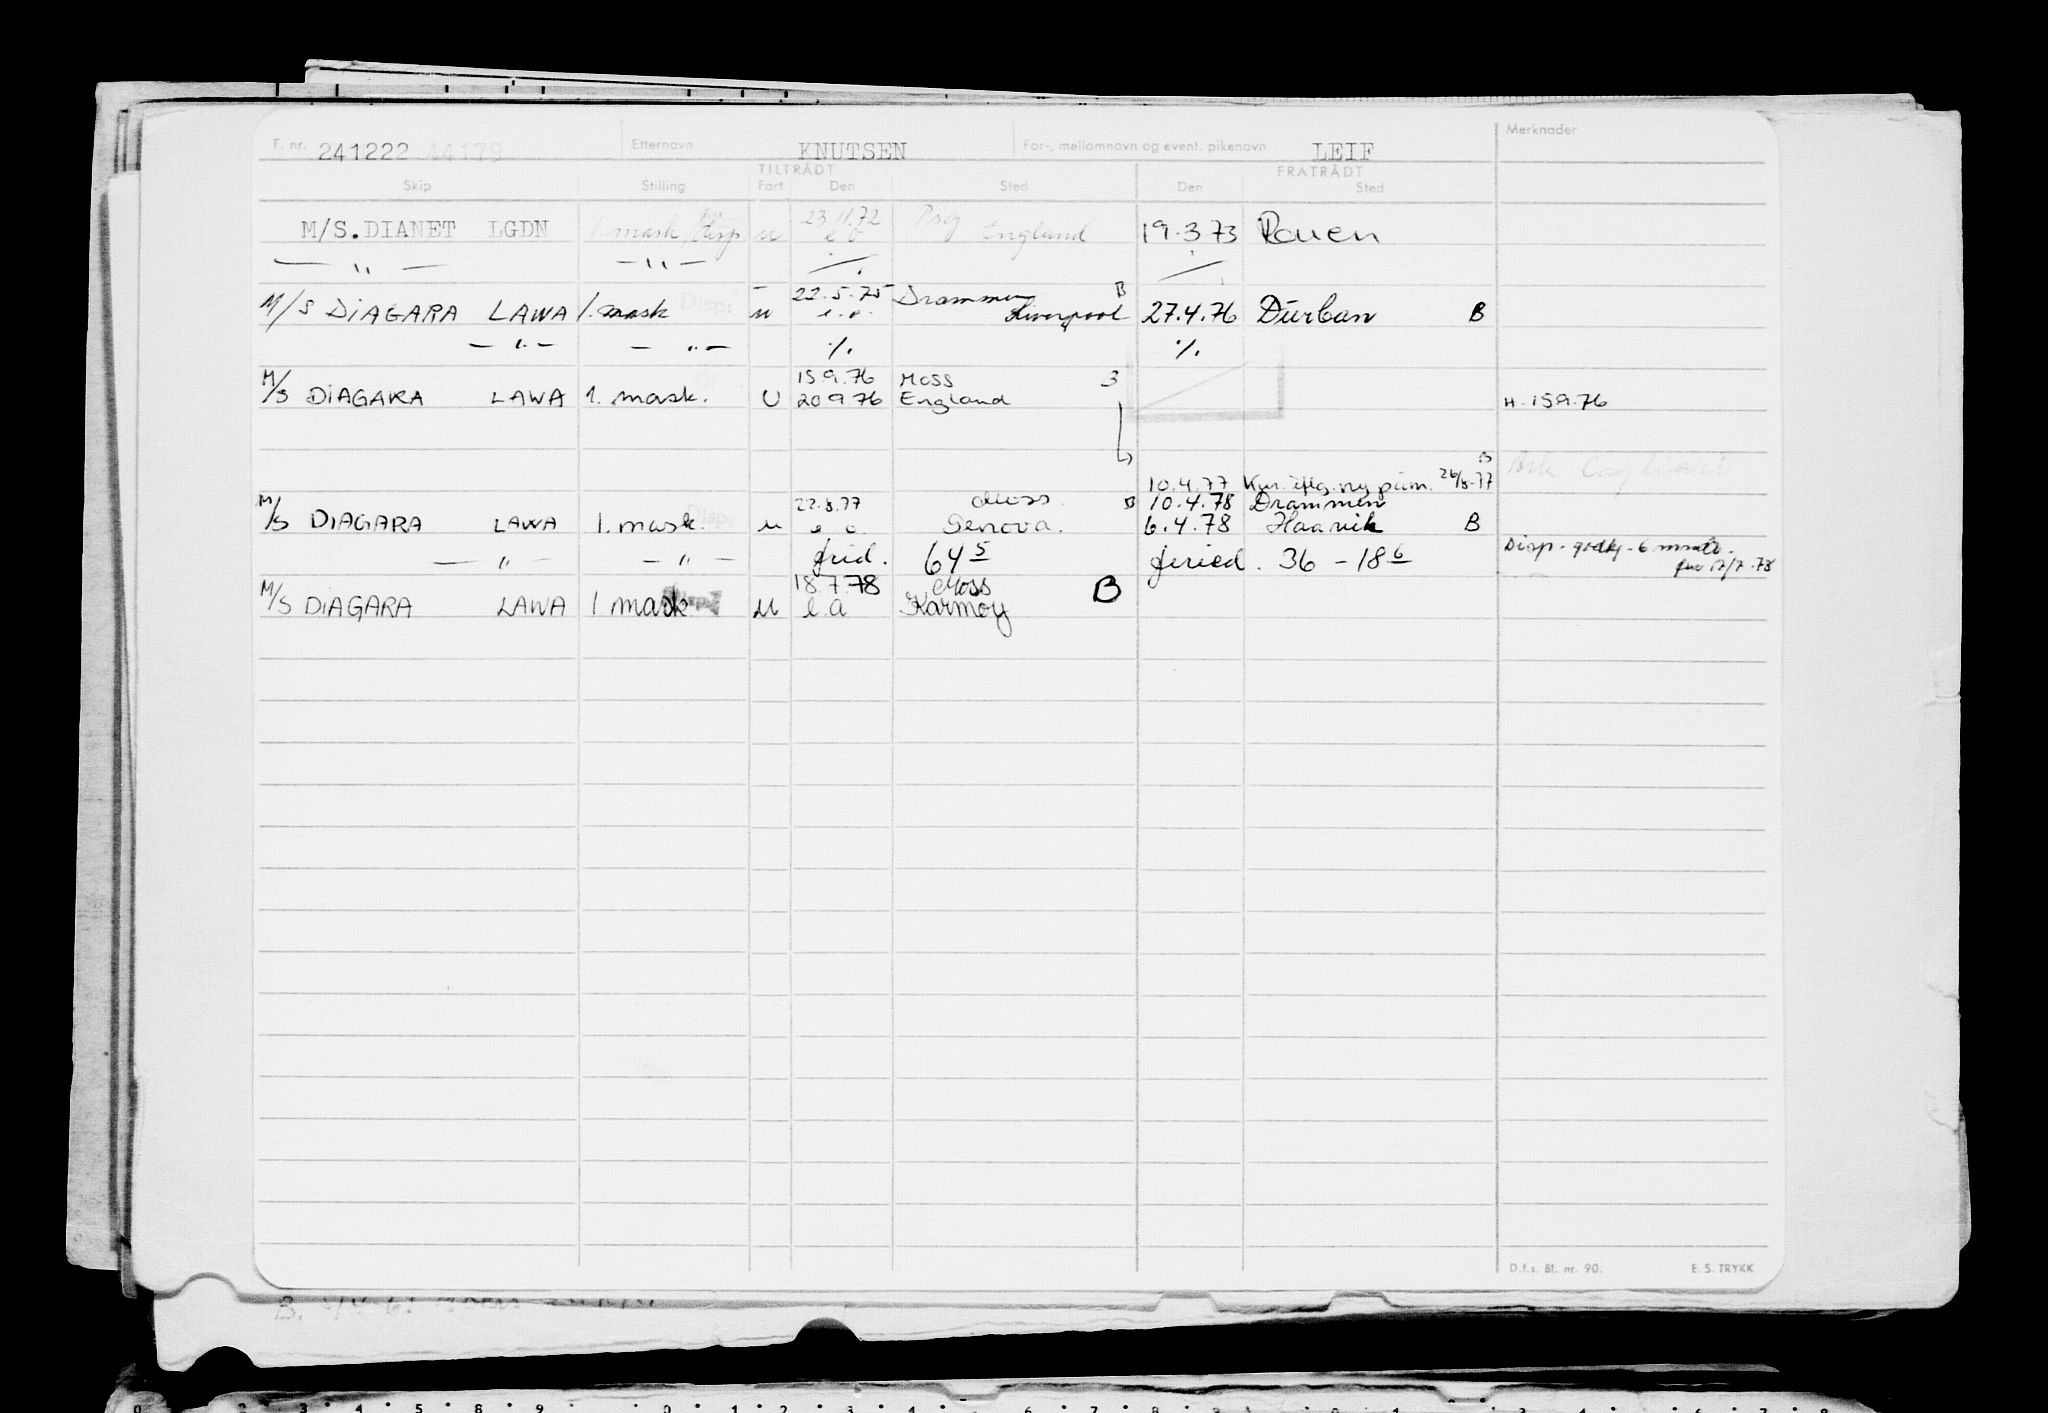 F. nr. 241222 44179 Etternavn KNUTSEN For-, mellomnavn og event. pikenavn LEIF Merknader
TILTRÅDT FRATRÅDT
Skip Stilling Fart Den Sted Den Sted
23.11.72 Psg
M/S.DIANET LGDN 1. mask/disp. u e o England 19.3.73 Rouen
— " — — " — ./. ./.
22.5.75 Drammen B
M/S DIAGARA LAWA 1. mask Disp u e.o. Liverpool 27.4.76 Durban B
— " — — " — ./. ./.
15 9.76 Moss 3
M/S DIAGARA LAWA 1. mask. U 20 9 76 England H. 15 9.76
B
10.4.77 26/8-77 Ark Cagliari
22.8.77 Moss. B 10.4.78 Drammen
M/S DIAGARA LAWA 1. mask. Disp. u e o. Genova. 6.4.78 Haavik B
— " — — " — frid. 64 5 feried. 36 - 18 6 Disp. godkj. 6 mndr.
fra 17/7.78
18.7.78 Moss B
M/S DIAGARA LAWA 1. mask. u e a Karmøy
D.f.s. Bl. nr. 90. E. S. TRYKK